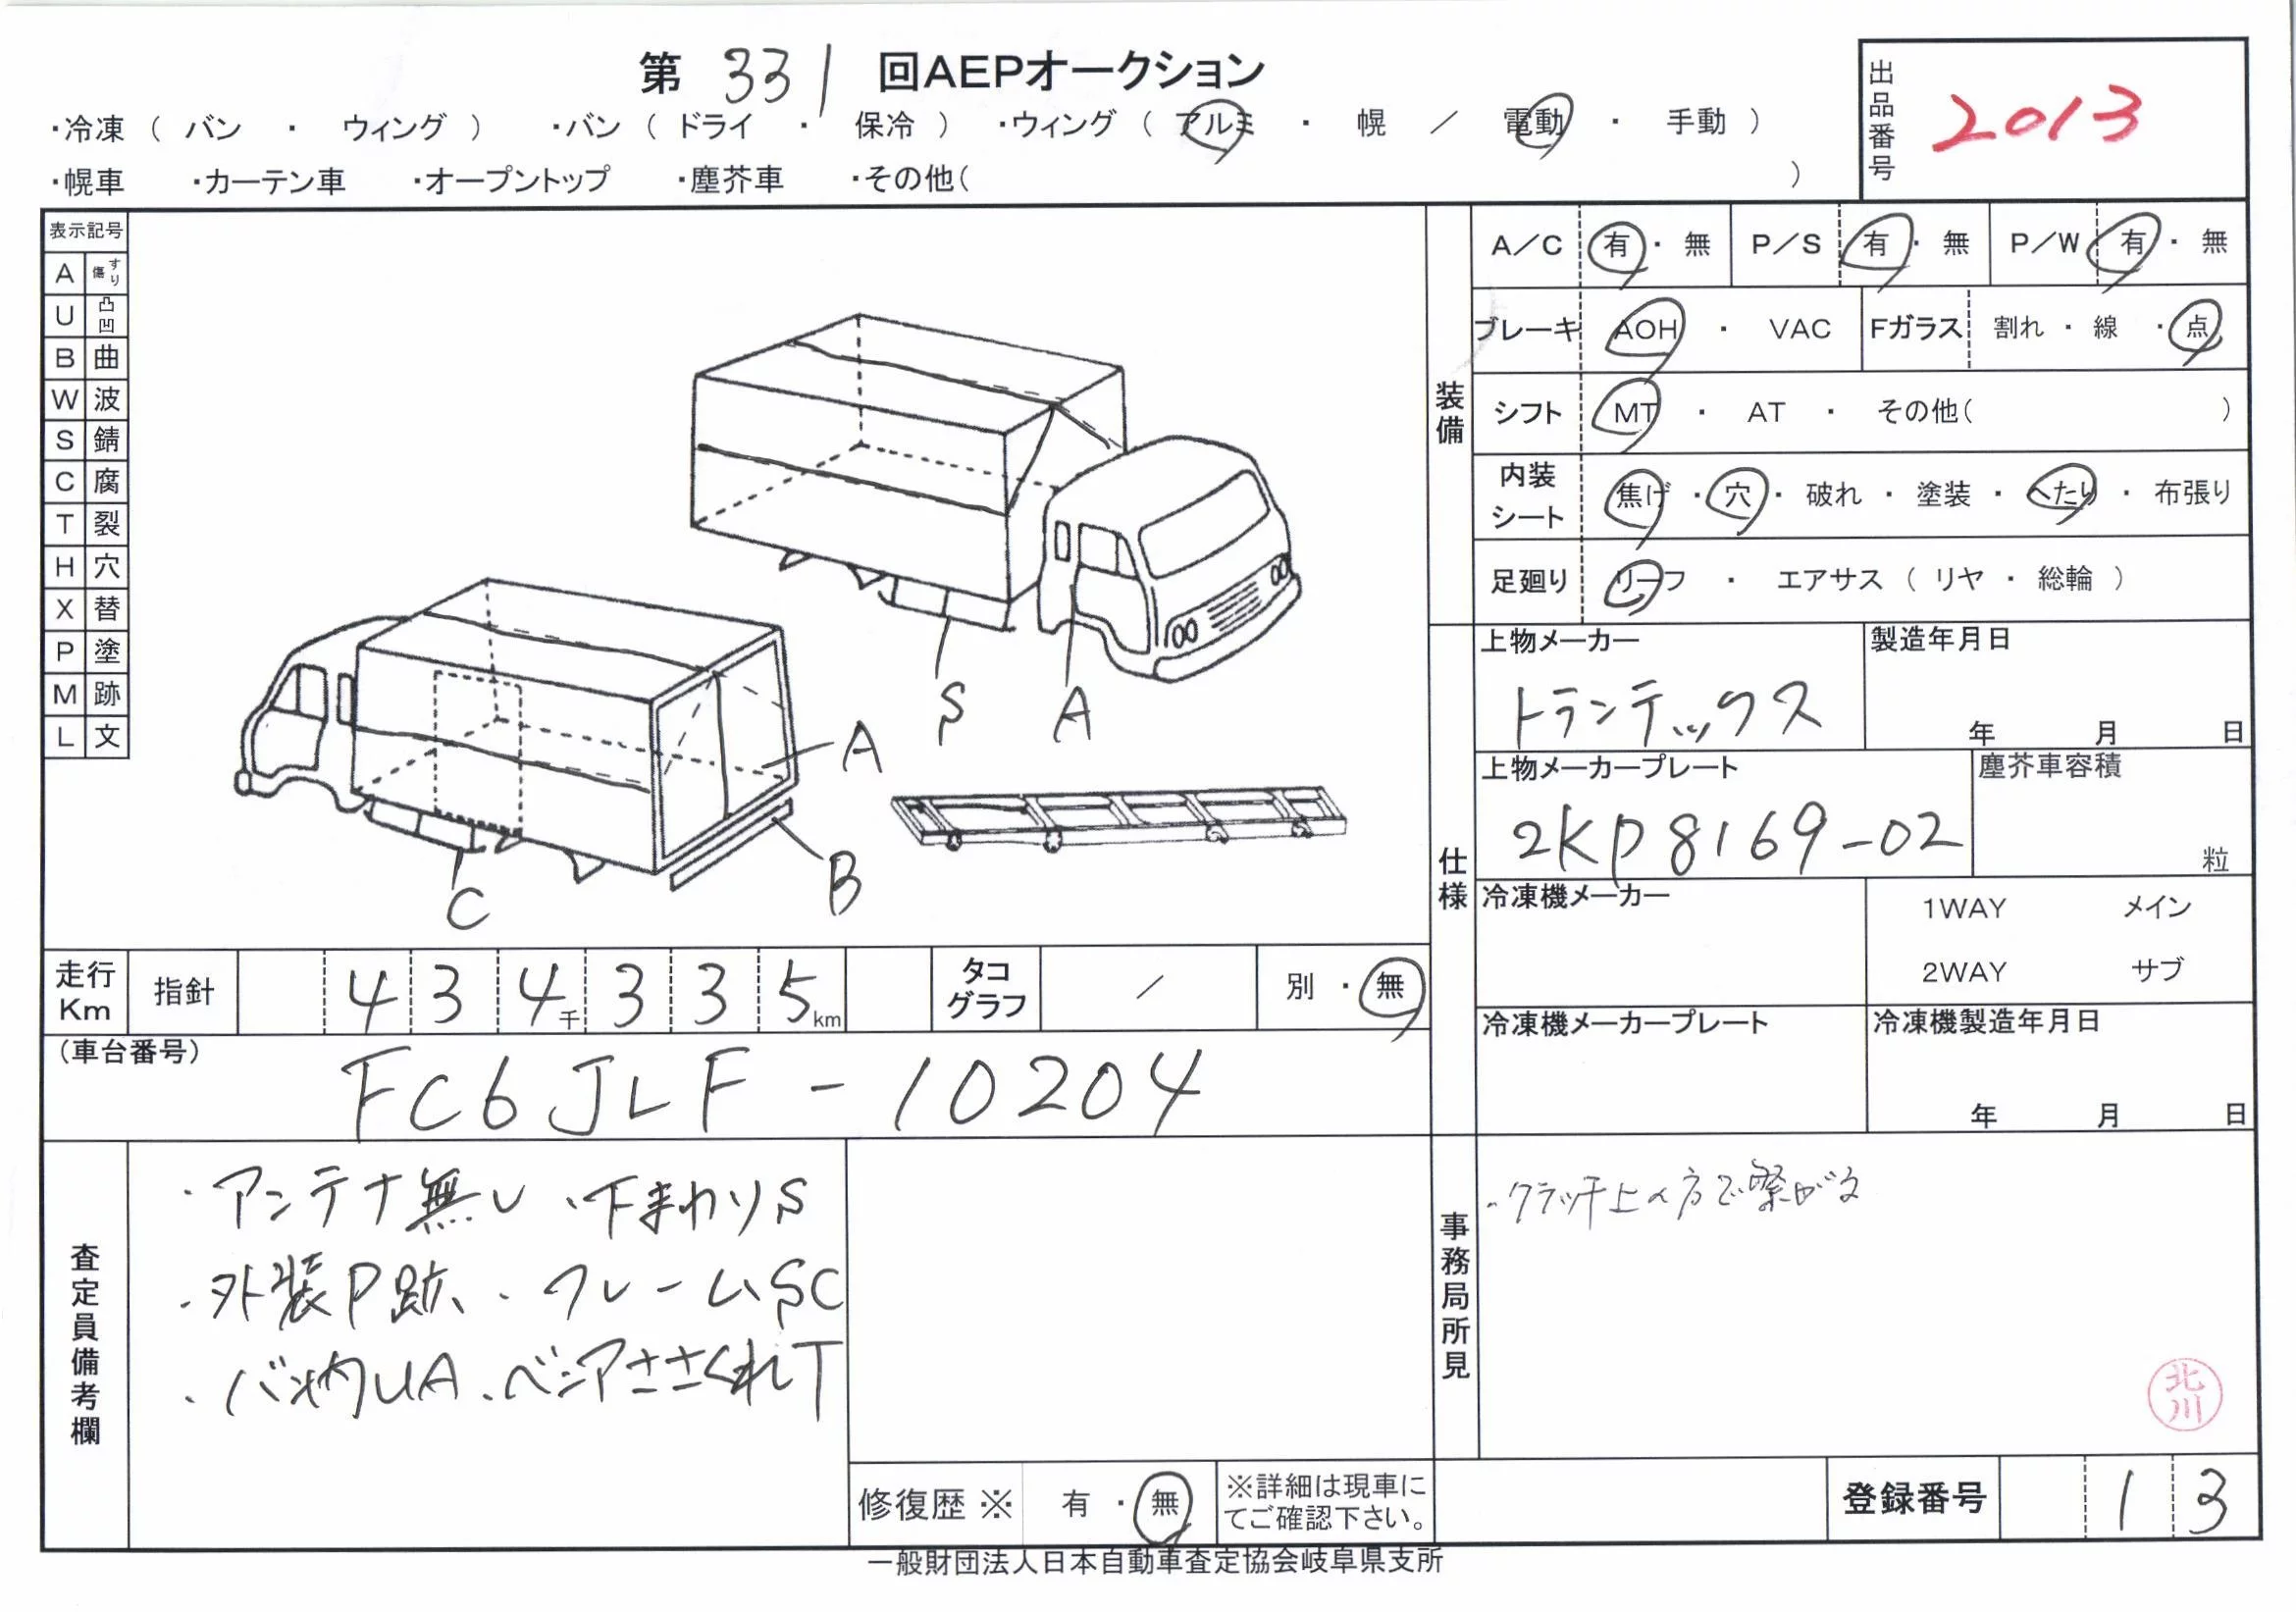 第 331 回AEPオークション
出品番号 2013
・冷凍 ( バン ・ ウィング ) ・バン ( ドライ ・ 保冷 ) ・ウィング ( アルミ ・ 幌 / 電動 ・ 手動 )
・幌車 ・カーテン車 ・オープントップ ・塵芥車 ・その他( )
表示記号
A すり傷
U 凸凹
B 曲
W 波
S 錆
C 腐
T 裂
H 穴
X 替
P 塗
M 跡
L 文
S
A
A
B
C
装備
A/C 有・無 P/S 有・無 P/W 有・無
ブレーキ AOH ・ VAC Fガラス 割れ ・ 線 ・ 点
シフト MT ・ AT ・ その他( )
内装シート 焦げ ・ 穴 ・ 破れ ・ 塗装 ・ へたり ・ 布張り
足廻り リーフ ・ エアサス ( リヤ ・ 総輪 )
仕様
上物メーカー 製造年月日
トランテックス 年 月 日
上物メーカープレート 塵芥車容積
2KP8169-02 粒
冷凍機メーカー 1WAY メイン
2WAY サブ
冷凍機メーカープレート 冷凍機製造年月日
年 月 日
走行Km 指針 434千335km タコグラフ / 別・無
(車台番号)
FC6JLF-10204
査定員備考欄
・アンテナ無し ・下まわりS
・外装P跡 ・フレームSC
・バン内UA ・ベニアささくれT
修復歴※ 有・無 ※詳細は現車にてご確認下さい。
事務局所見
・クラッチ上の方で繋がる
北川
登録番号 13
一般財団法人日本自動車査定協会岐阜県支所